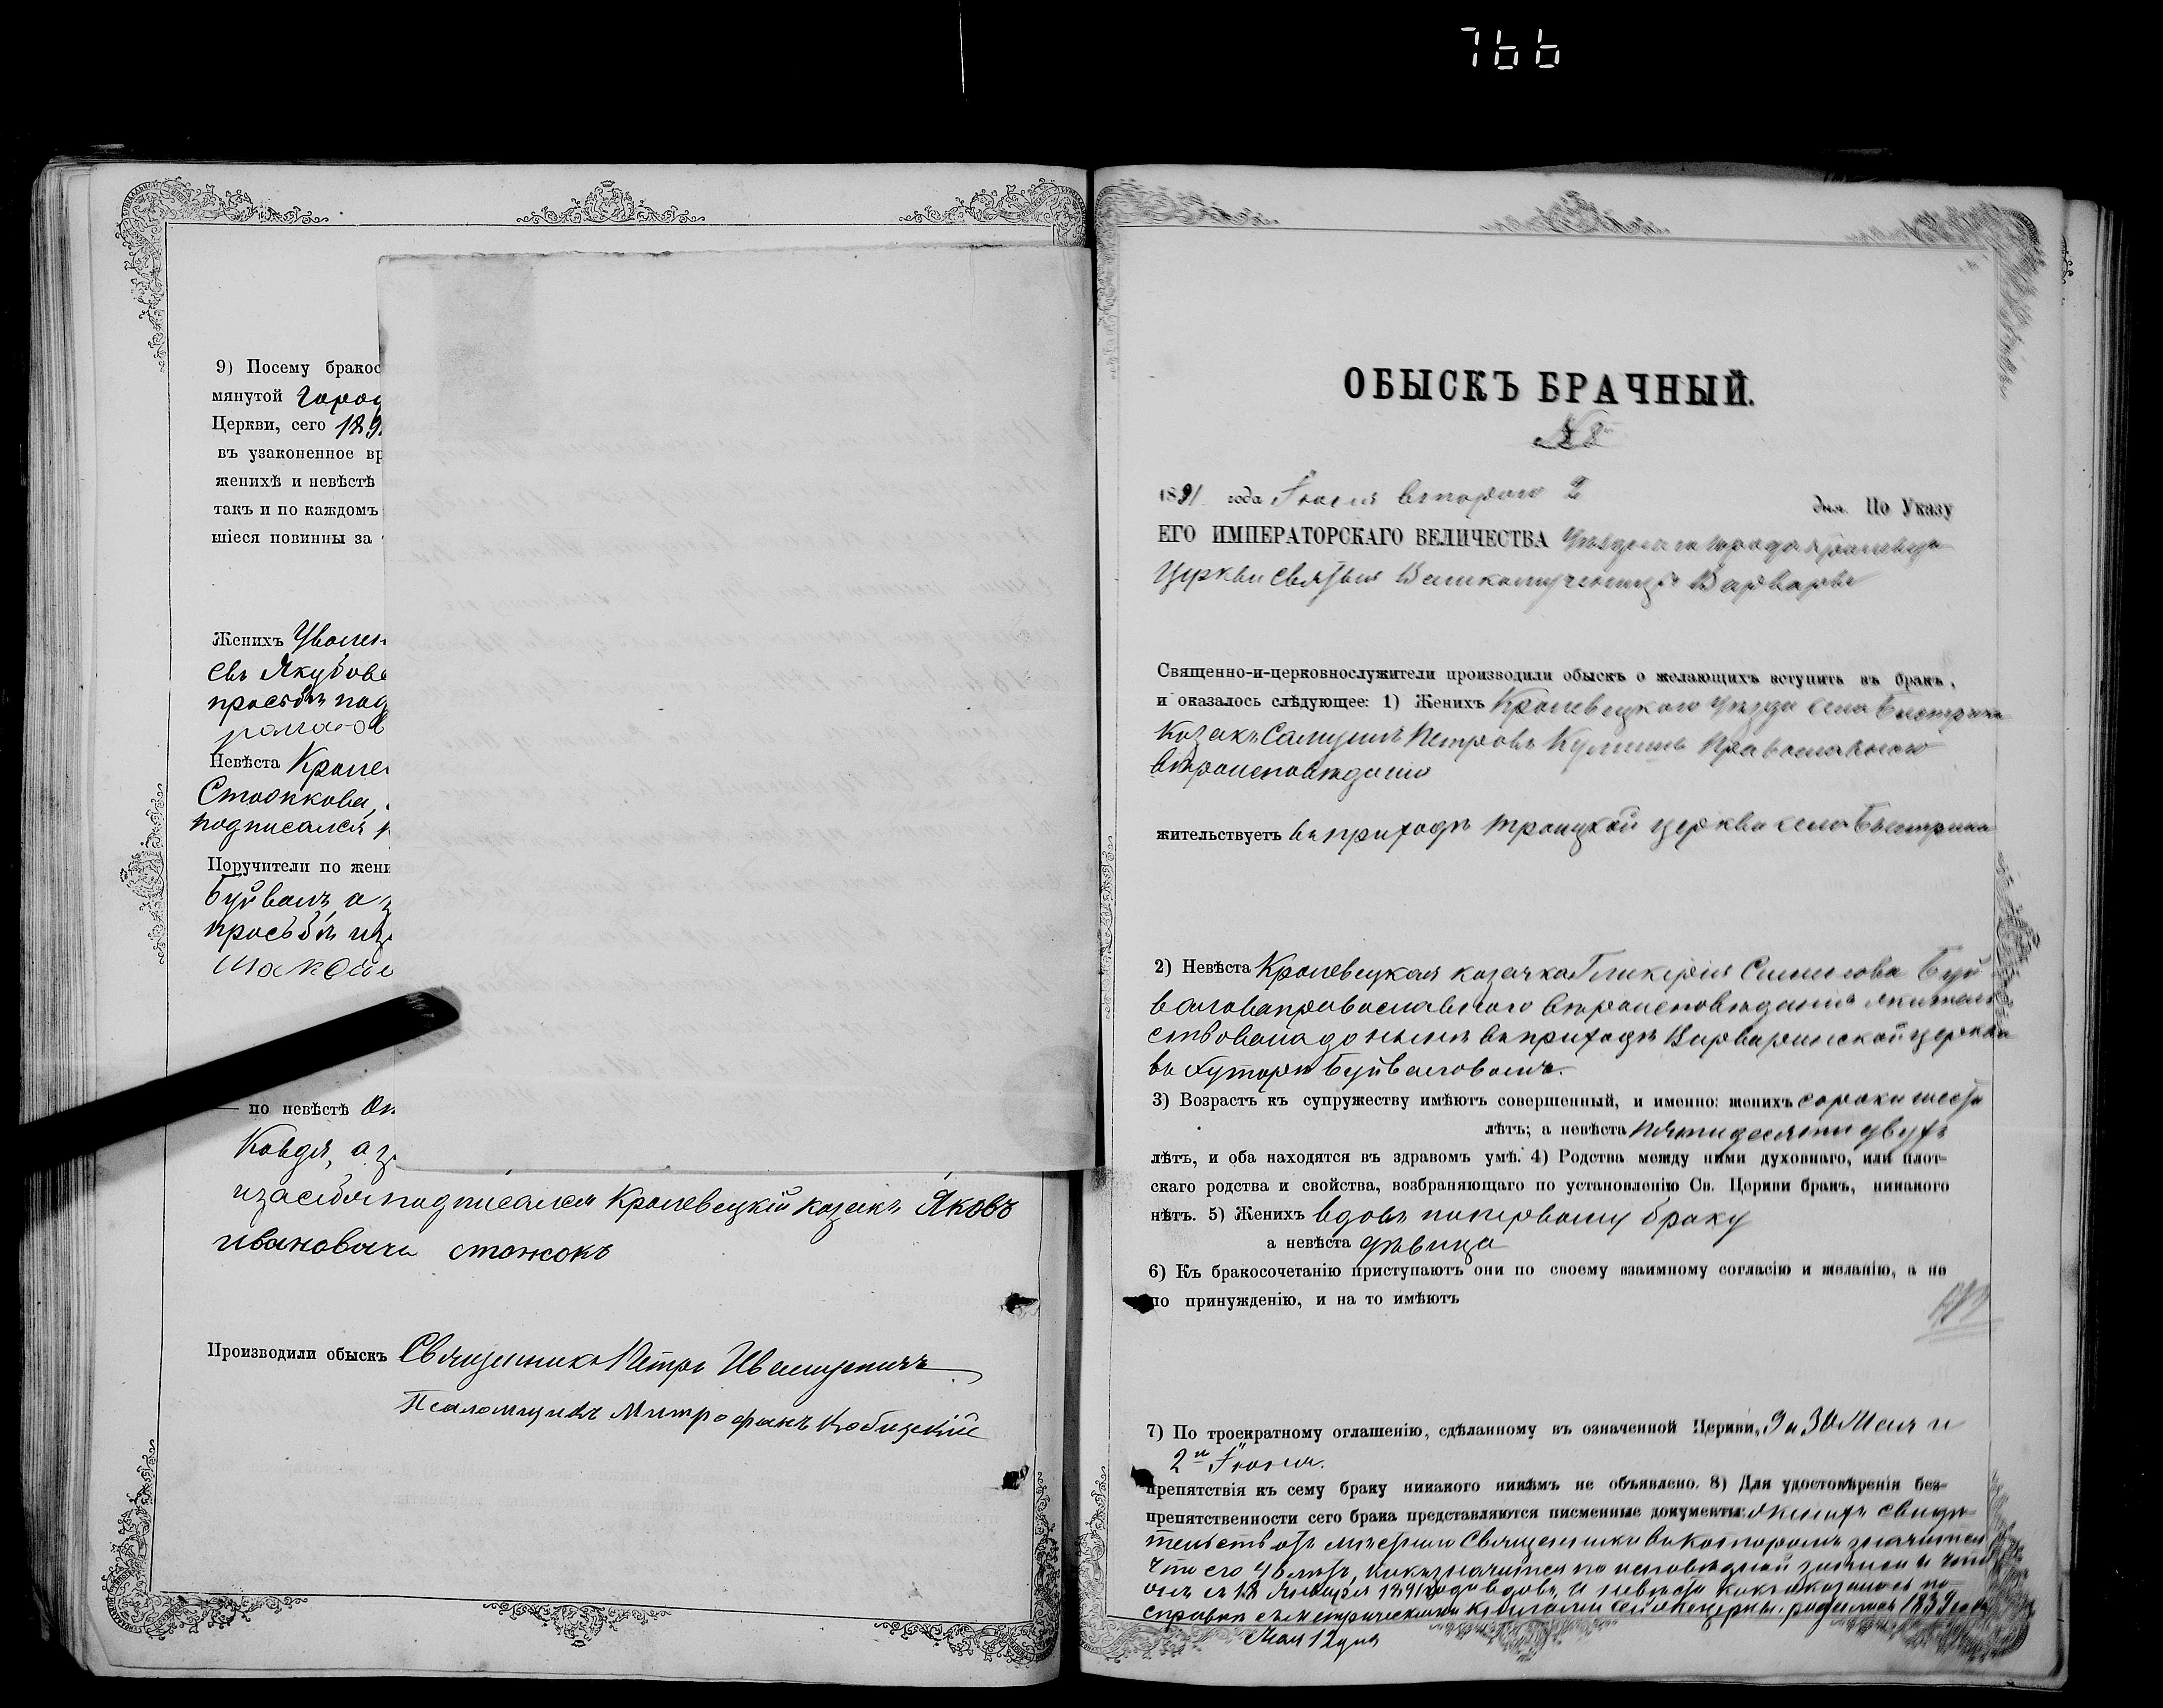 766
9) Посему бракос
мянутой Город
Церкви, сего 189
въ узаконенное вр
женихѣ и невѣстѣ
такъ и по каждомъ
шіеся повинны за
Женихъ Уволен
евъ Якубов
просьбѣ под
роман
Невѣста Кролев
подписался
Поручители по жени
Буйвалъ, а
просьбѣ
по невѣстѣ
Ковдя, а
и за себя подписался Кролевецкій козакъ Яковъ
ивановичъ стожокъ
Производили обыскъ Священникъ Петръ
Псаломщикъ Митрофанъ
ОБЫСКЪ БРАЧНЫЙ.
№ 8
1891 года Іюня второго 2 дня. По Указу
ЕГО ИМПЕРАТОРСКАГО ВЕЛИЧЕСТВА Уѣзднаго города Кролевца
Церкви Святыя Великомученицы Варвары
Священно-и-церковнослужители производили обыскъ о желающихъ вступить въ бракъ,
и оказалось слѣдующее: 1) Женихъ Кролевецкого Уѣзда села Быстрика
Козакъ Самуилъ Петровъ Кулишъ Православного
вѣроисповѣданія
жительствуетъ въ приходѣ троицкой церкви села Быстрика
2) Невѣста Кролевецкая козачка Гликерія Буй
валова православного вѣроисповѣданія жительс
ствовала до нынѣ въ приходѣ Варваринской церкви
въ хуторѣ Буйваловомъ.
3) Возрастъ къ супружеству имѣютъ совершенный, и именно: женихъ сорока шести
лѣтъ; а невѣста пятидесяти двухъ
лѣтъ, и оба находятся въ здравомъ умѣ. 4) Родства между ними духовнаго, или плот-
скаго родства и свойства, возбраняющаго по установленію Св. Церкви бракъ, никакого
нѣтъ. 5) Женихъ вдовъ по первому браку
а невѣста дѣвица
6) Къ бракосочетанію приступаютъ они по своему взаимному согласію и желанію, а не
по принужденію, и на то имѣютъ
7) По троекратному оглашенію, сдѣланному въ означенной Церкви, 9 и 30 Мая и
2го Іюня.
препятствія къ сему браку никакого никѣмъ не объявлено. 8) Для удостовѣренія без-
препятственности сего брака представляются писменные документы: женихъ свидѣ
тельство отъ мѣстнаго Священника въ которомъ значится
что его 46 лѣтъ, какъ значится по исповѣдной записи и что
онъ съ 18 Января 1891 года вдовъ, а невѣста какъ оказалось по
справкѣ съ метрическими книгами сей церкви родилась 1839 года
Мая 12 дня